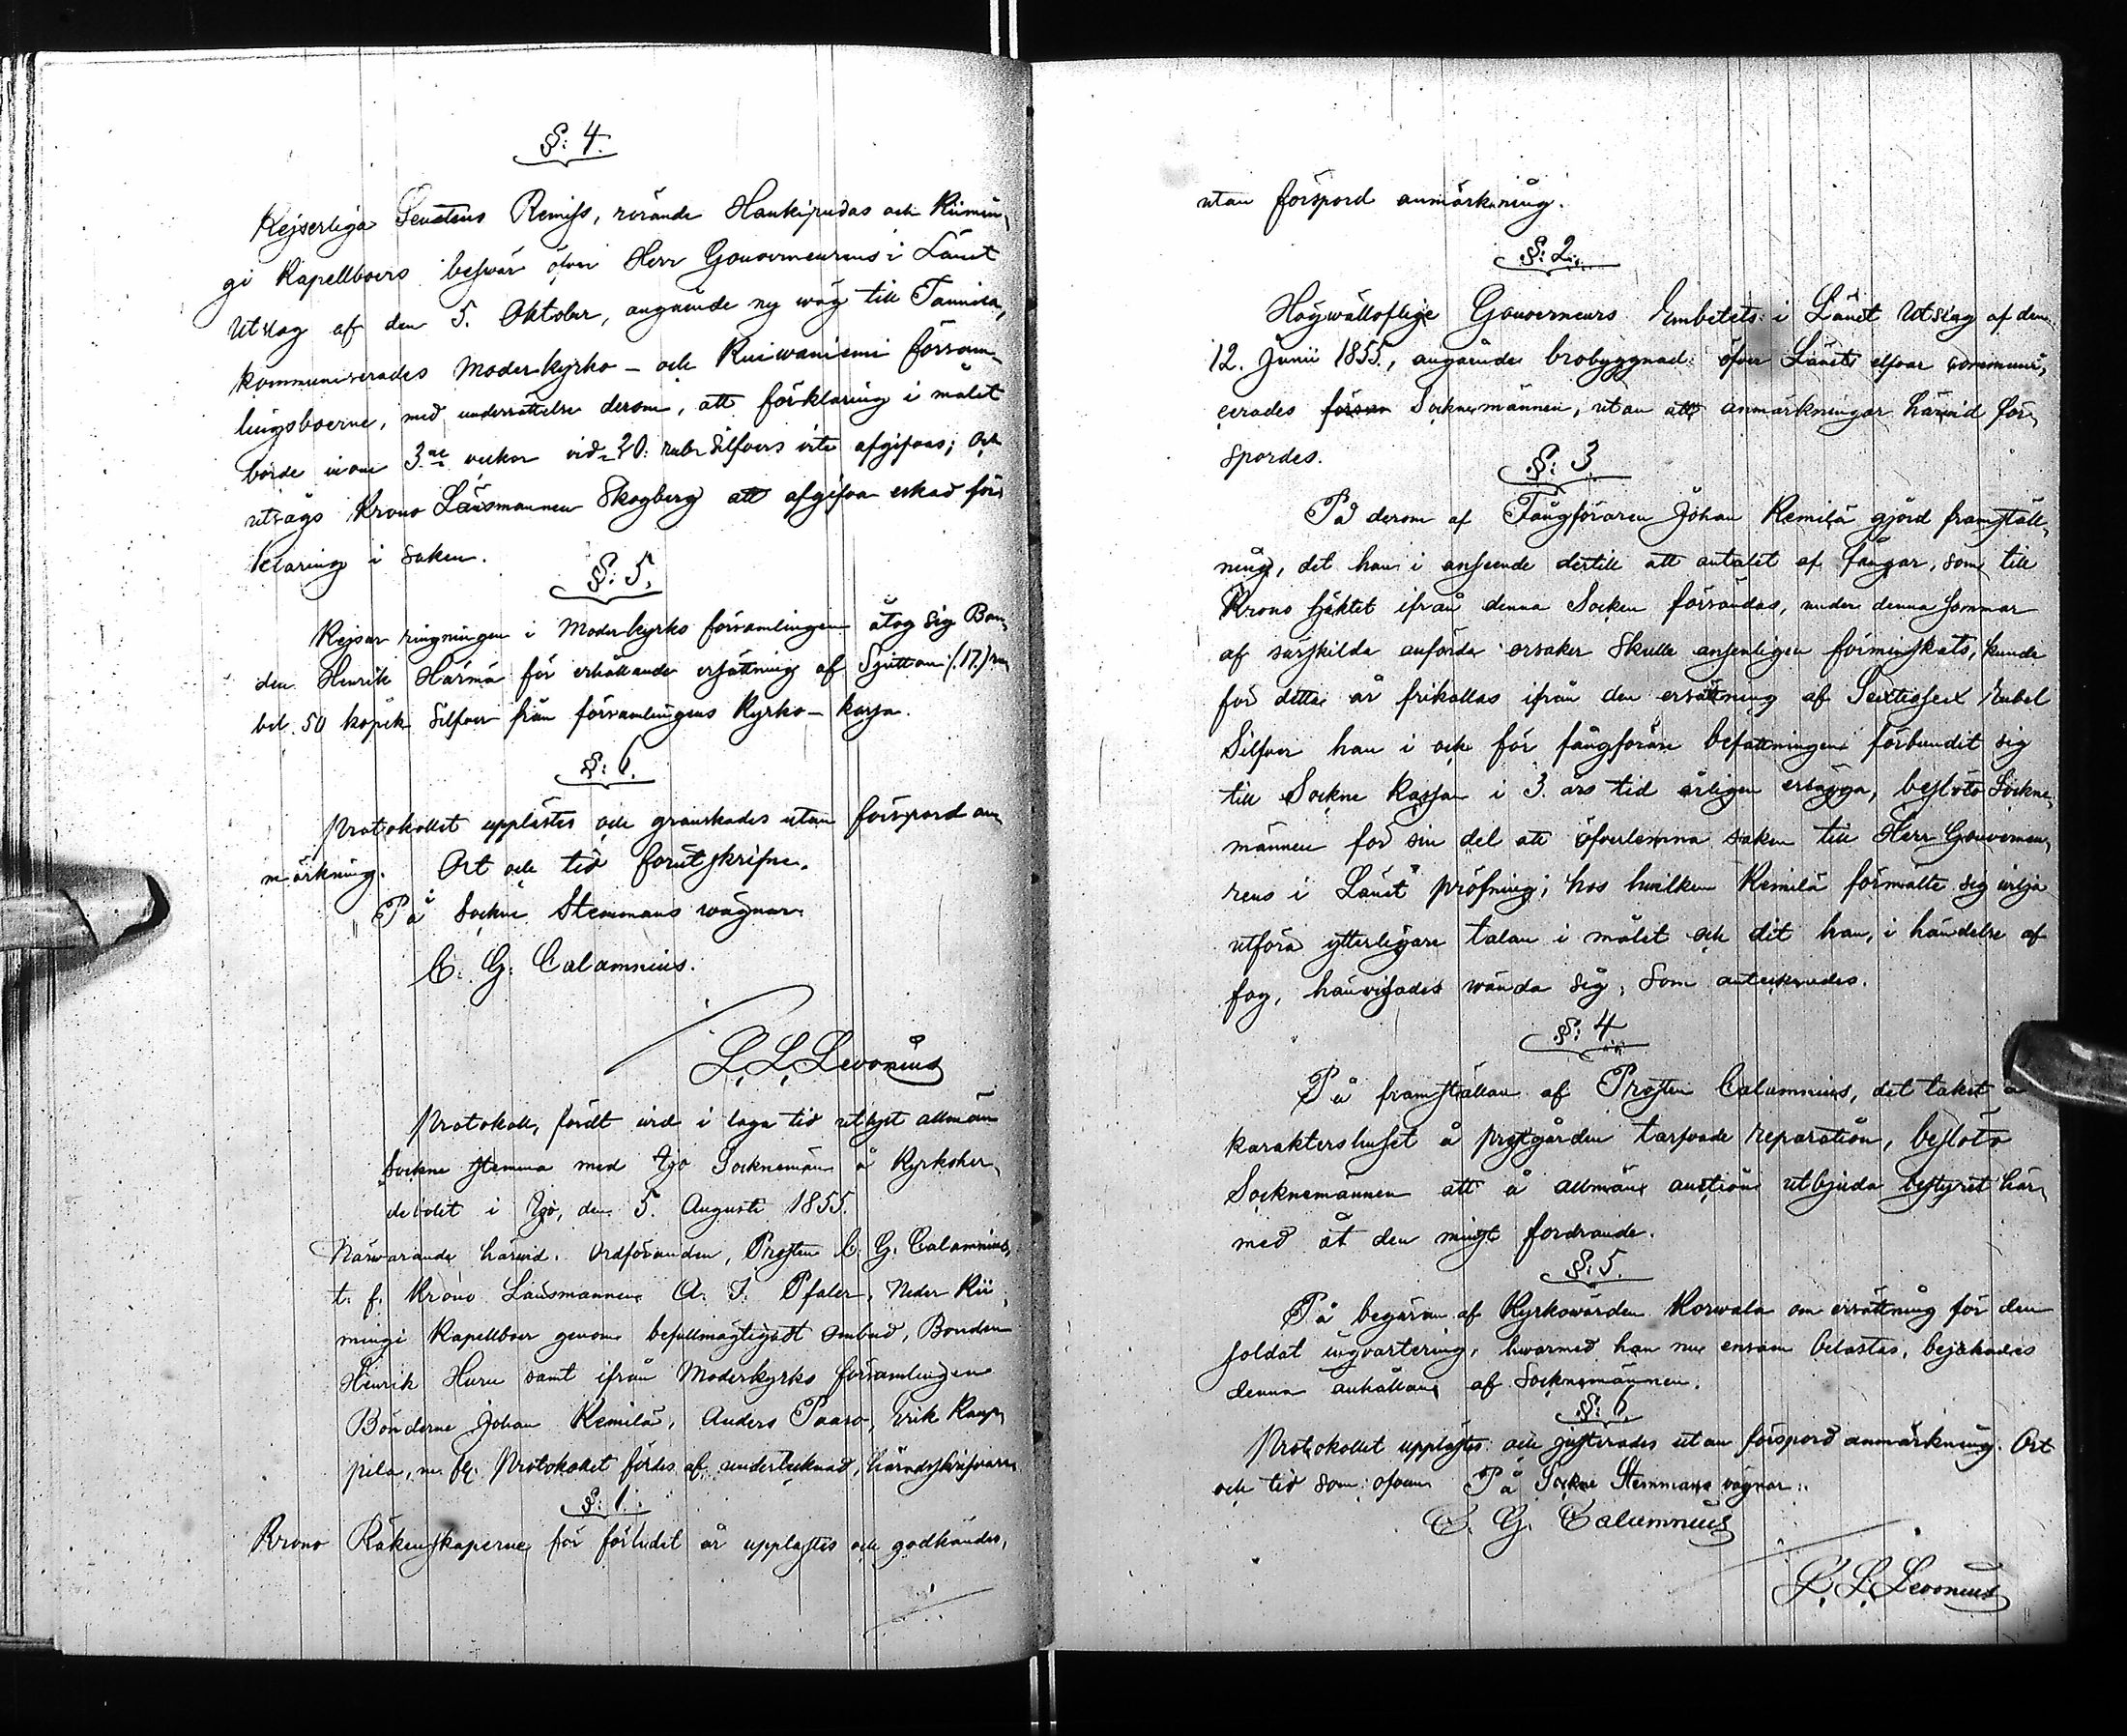 §: 4.
Kejserliga Senatens Remiss, rörande Haukipudas och Kiimin¬
gi Kapellboers besvär öfver Herr Gouverneurens i Länet
Utslag af den 5. Oktober, angående ny wäg till Tannila,
kommunicerades Moderkyrko- och Kuiwaniemi försam¬
lingsboerne, med underrättelse derom, att förklaring i målet
borde inom 3ne veckor vid 20. rub. Silfvers vite afgifvas; och
utsågs Krono Länsmannen Skogberg att afgifva eskad för¬
klaring i saken.
§: 5.
Kejsar ringningen i Moderkyrko församlingen åtog sig Bon¬
den Henrik Härmä för erhållande ersättning af Sjutton (17.) ru¬
bel 50 kopek Silfver från församlingens Kyrko-kassa.
§: 6.
Protokollet upplästes och granskades utan förspord an¬
märkning. Ort och tid förutskrifne.
På Sockne Stemmans wägnar
C. G. Calamnius.
L. L. Levonius
Protokoll, fördt vid i laga tid utlyst allmän
Sockne stemma med Ijo Socknemän å Kyrkoher¬
debolet i Ijo, den 5. Augusti 1855.
Närwarande härvid. Ordföranden, Prosten C. G. Calamnius,
t. f. Krono Länsmannen A. J. Pfaler, Neder Kii¬
mingi Kapellboer genom befullmägtigadt ombud, Bonden
Henrik Huru samt ifrån Moderkyrko församlingen
Bönderne Johan Kemilä, Anders Paaso, Erik Kaup¬
pila, m. fl. Protokollet fördes af undertecknad, häradsskrifvare
§: 1.
Krono Räkenskaperne för förlidet år upplästes och godkändes,
utan förspord anmärkning.
§: 2.
Högwälloflige Gouverneurs Embetets i Länet Utslag af den
12. Junii 1855, angående brobyggnad öfver Länets elfvar communi¬
cerades försam Socknemännen, utan att anmärkningar härvid för¬
spordes.
§: 3
På derom af Fångföraren Johan Kemilä gjord framställ¬
ning, det han i anseende dertill att antalet af fångar, som till
Krono häktet ifrån denna Socken försändas, under denna sommar
af särskilda anförda orsaker skulle ansenligen förminskats, kunde
för detta år frikallas ifrån den ersättning af Sextiosex Rubel
Silfver han i och för fångförare befattningen förbundit sig
till Sockne kassan i 3. års tid årligen erlägga, beslöto Sockne¬
männen för sin del att öfverlemna saken till Herr Gouverneu¬
rens i Länet pröfning; hos hwilken Kemilä förmälte sig wilja
utföra ytterligare talan i målet och dit han, i händelse af
fog, hänvisades wända sig, Som antecknades.
§: 4
På framställan af Prosten Calamnius, det taket å
karaktershuset å prestgården tarfvade reparation, beslöto
Socknemännen att å allmän auction utbjuda bestyret här¬
med åt den minst fordrande.
§: 5.
På begäran af Kyrkowärden Korwala om ersättning för den
soldat inqvartering, hwarmed han nu ensam belastas, bejakades
denna anhållan af Socknemännen.
§: 6.
Protokollet upplästes och justerades utan förspord anmärkning. Ort
och tid som ofvan På Sockne Stemmans vägnar:
C. G. Calamnius
L. L. Levonius